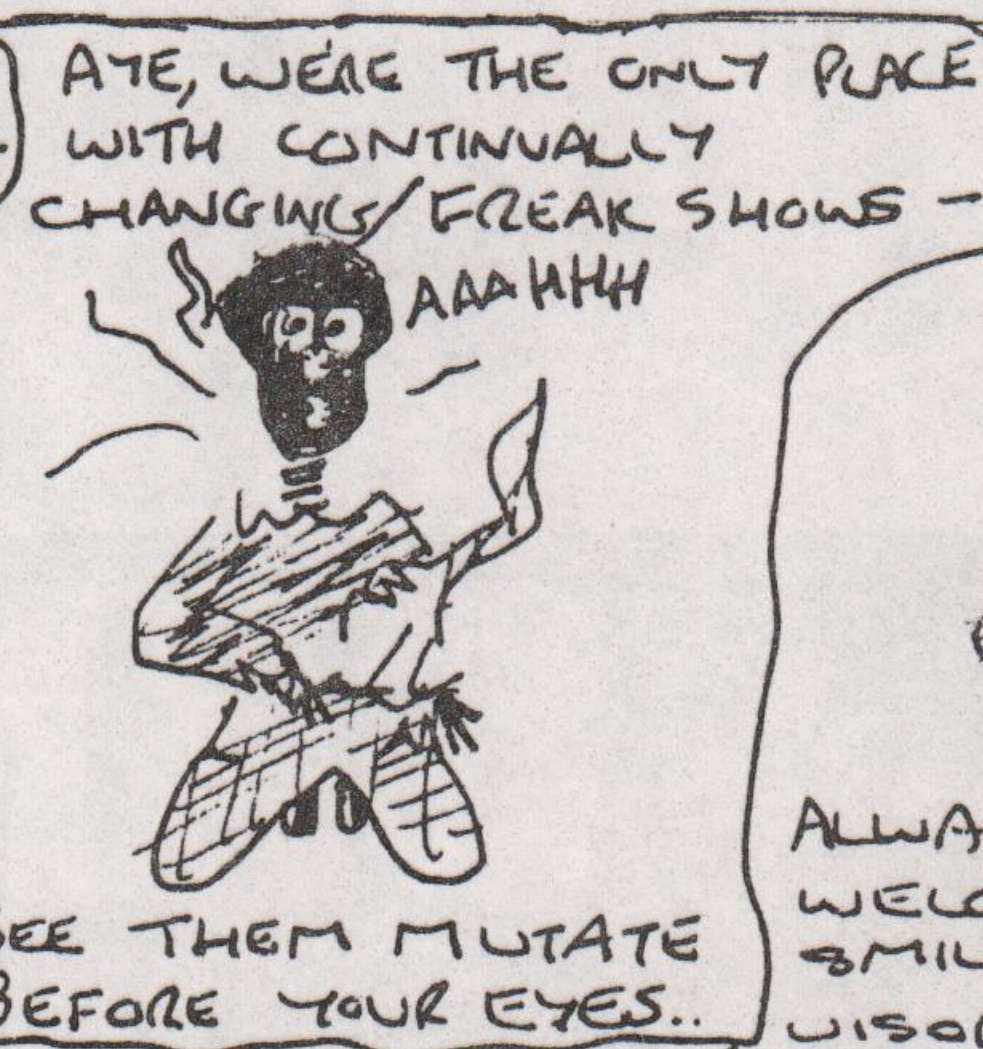 AYE, WE'RE THE ONLY PLACE
WITH CONTINUALLY
CHANGING FREAK SHOWS -
AAAHHH
SEE THEM MUTATE
BEFORE YOUR EYES..